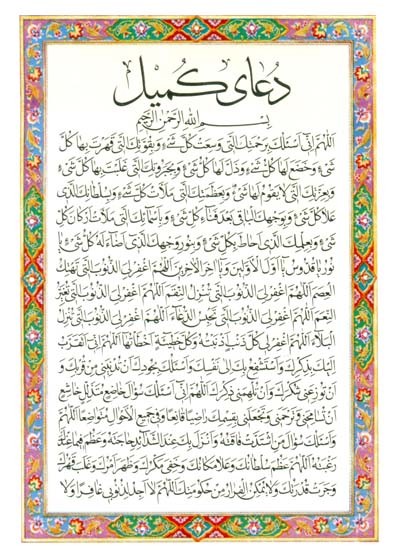 دعای کمیل
بسم الله الرحمن الرحیم
اللهم انی اسئلک برحمتک التی وسعت کل شیء و بقوتک التی قهرت بها کل
شیء و خضع لها کل شیء و ذل لها کل شیء و بجبروتک التی غلبت بها کل شیء
و بعزتک التی لا یقوم لها شیء و بعظمتک التی ملأت کل شیء و بسلطانک الذی
علا کل شیء و بوجهک الباقی بعد فناء کل شیء و باسمائک التی ملأت ارکان کل
شیء و بعلمک الذی احاط بکل شیء و بنور وجهک الذی اضاء له کل شیء یا
نور یا قدوس یا اول الاولین و یا آخر الاخرین اللهم اغفر لی الذنوب التی تهتک
العصم اللهم اغفر لی الذنوب التی تنزل النقم اللهم اغفر لی الذنوب التی تغیر
النعم اللهم اغفر لی الذنوب التی تحبس الدعاء اللهم اغفر لی الذنوب التی تنزل
البلاء اللهم اغفر لی کل ذنب اذنبته و کل خطیئة اخطأتها اللهم انی اتقرب
الیک بذکرک و استشفع بک الی نفسک و اسئلک بجودک ان تدنینی من قربک و
ان توزعنی شکرک و ان تلهمنی ذکرک اللهم انی اسئلک سؤال خاضع متذلل خاشع
ان تسامحنی و ترحمنی و تجعلنی بقسمک راضیا قانعا و فی جمیع الاحوال متواضعا اللهم
و اسئلک سؤال من اشتدت فاقته و انزل بک عند الشدائد حاجته و عظم فیما عندک
رغبته اللهم عظم سلطانک و علا مکانک و خفی مکرک و ظهر امرک و غلب قهرک
و جرت قدرتک و لا یمکن الفرار من حکومتک اللهم لا اجد لذنوبی غافرا و لا